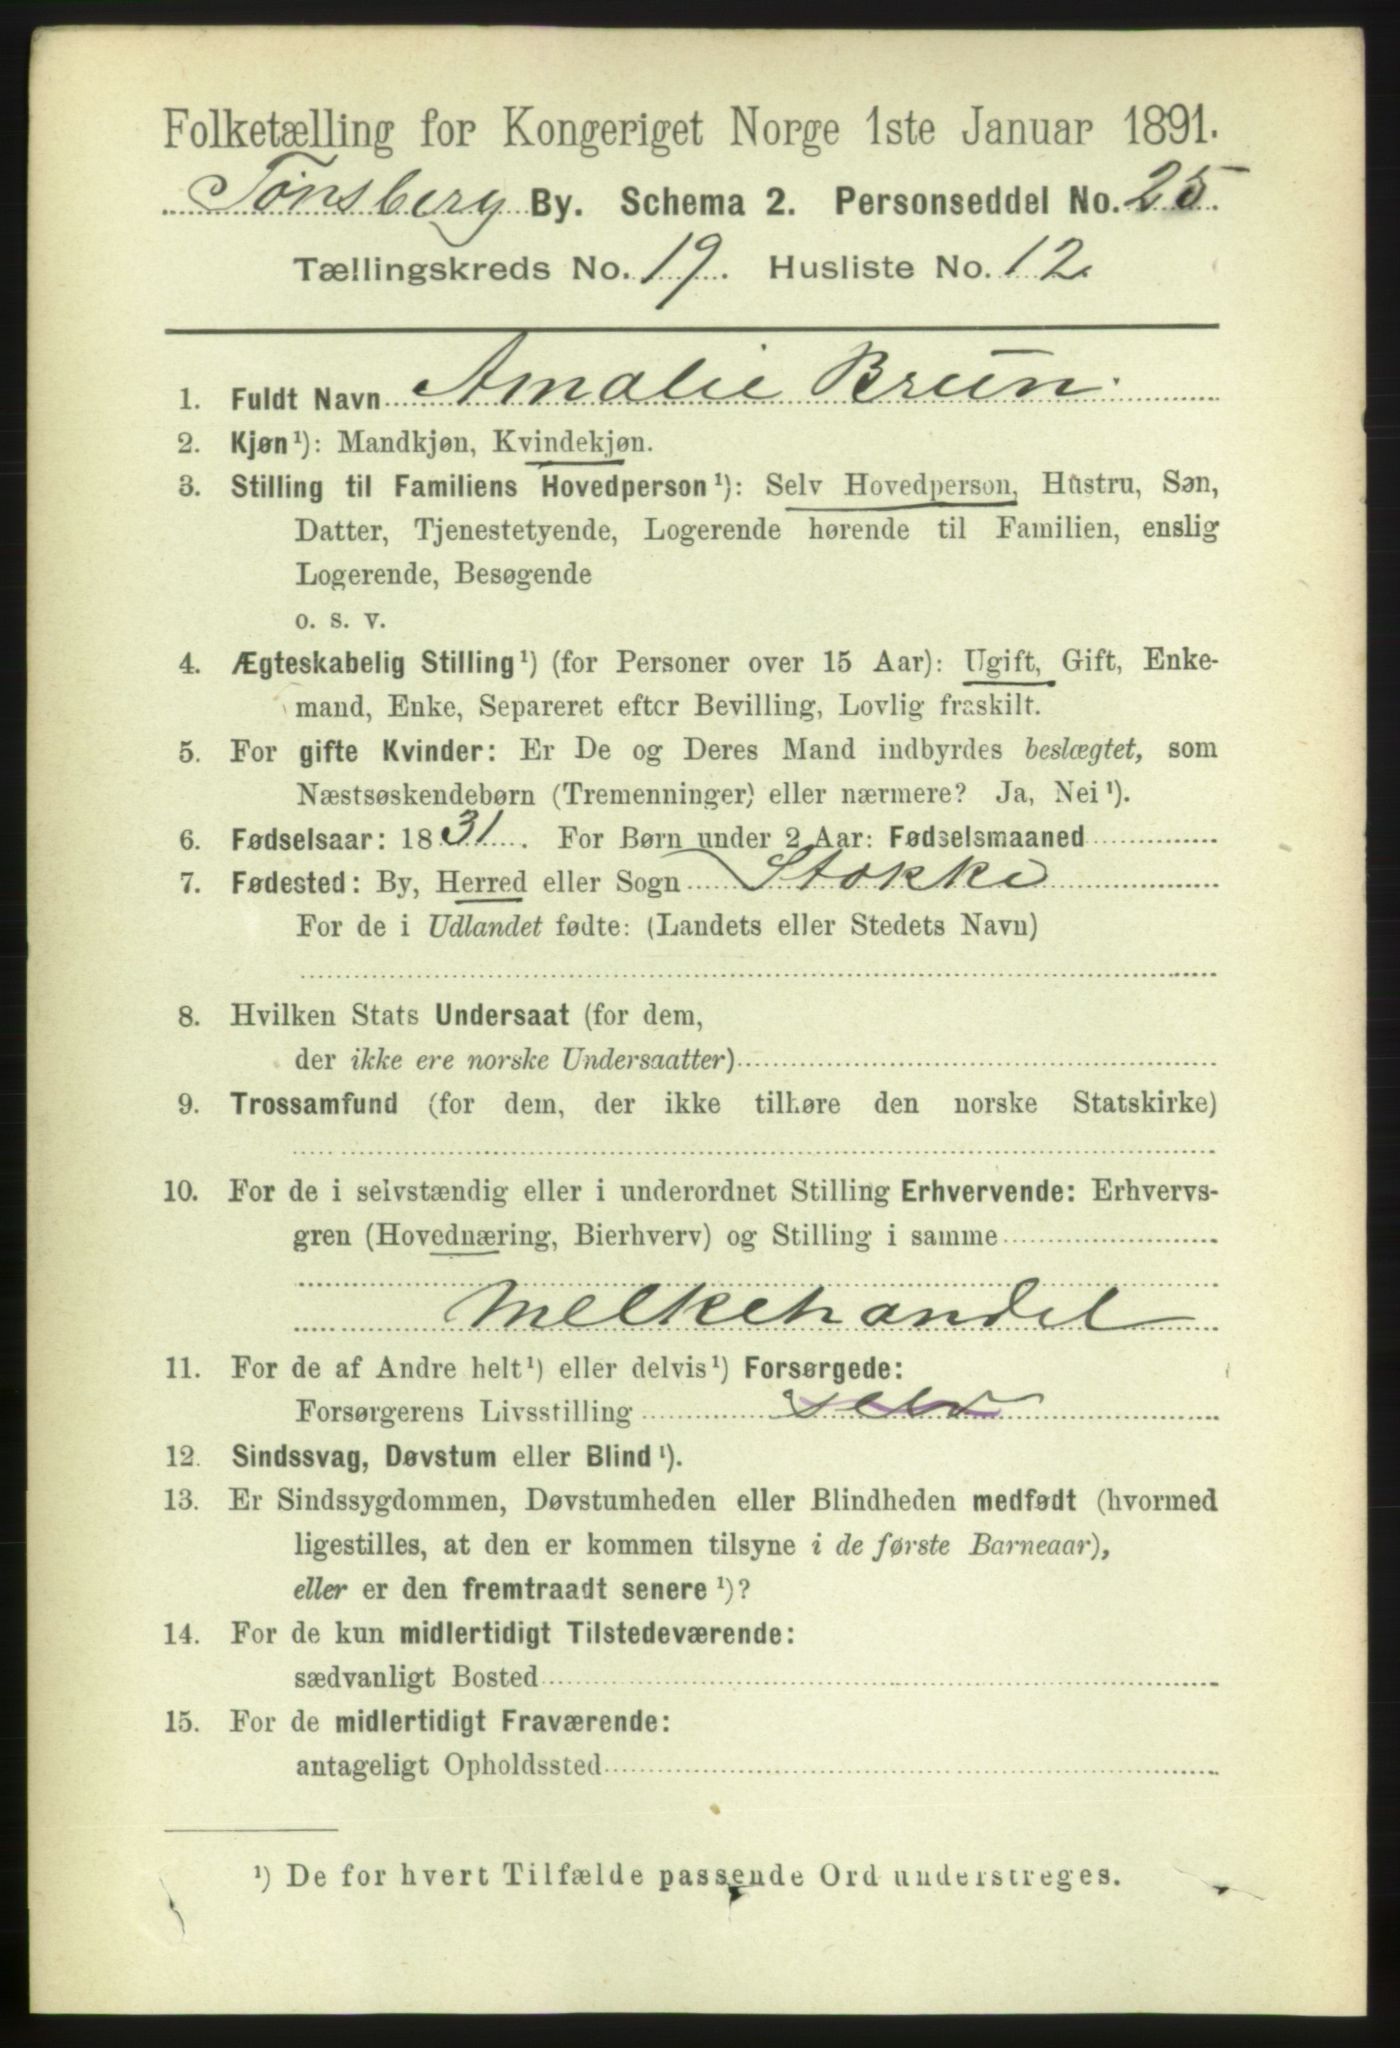 Folketælling for Kongeriget Norge 1ste Januar 1891.
Tønsberg By. Schema 2. Personseddel No. 25.
Tællingskreds No. 19. Husliste No. 12.
1. Fuldt Navn Amalie Brun.
2. Kjøn¹): Mandkjøn, Kvindekjøn.
3. Stilling til Familiens Hovedperson¹): Selv Hovedperson, Hustru, Søn,
Datter, Tjenestetyende, Logerende hørende til Familien, enslig
Logerende, Besøgende
o. s. v.
4. Ægteskabelig Stilling¹) (for Personer over 15 Aar): Ugift, Gift, Enke-
mand, Enke, Separeret efter Bevilling, Lovlig fraskilt.
5. For gifte Kvinder: Er De og Deres Mand indbyrdes beslægtet, som
Næstsøskendebørn (Tremenninger) eller nærmere? Ja, Nei¹).
6. Fødselsaar: 1831. For Børn under 2 Aar: Fødselsmaaned
7. Fødested: By, Herred eller Sogn Stokke
For de i Udlandet fødte: (Landets eller Stedets Navn)
8. Hvilken Stats Undersaat (for dem,
der ikke ere norske Undersaatter)
9. Trossamfund (for dem, der ikke tilhøre den norske Statskirke)
10. For de i selvstændig eller i underordnet Stilling Erhvervende: Erhvervs-
gren (Hovednæring, Bierhverv) og Stilling i samme
Melkehandel
11. For de af Andre helt¹) eller delvis¹) Forsørgede:
Forsørgerens Livsstilling selv
12. Sindssvag, Døvstum eller Blind¹).
13. Er Sindssygdommen, Døvstumheden eller Blindheden medfødt (hvormed
ligestilles, at den er kommen tilsyne i de første Barneaar),
eller er den fremtraadt senere¹)?
14. For de kun midlertidigt Tilstedeværende:
sædvanligt Bosted
15. For de midlertidigt Fraværende:
antageligt Opholdssted
¹) De for hvert Tilfælde passende Ord understreges.